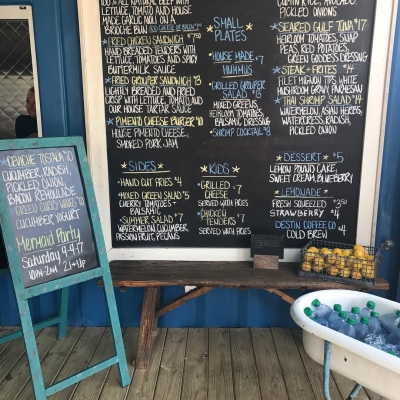 1/2 ALL NATURAL BEEF WITH
LETTUCE, TOMATO AND HOUSE
MADE GARLIC MOJO ON A
BRIOCHE BUN
FRIED CHICKEN SANDWICH $7.50
HAND BREADED TENDERS WITH
LETTUCE, TOMATOES AND SPICY
BUTTERMILK SAUCE
FRIED GROUPER SANDWICH
LIGHTLY BREADED AND FRIED
CRISP WITH LETTUCE, TOMATO, AND
OUR HOUSE TARTAR SAUCE
PIMENTO CHEESE BURGER $10
HOUSE PIMENTO CHEESE,
SMOKED PORK JAM
SIDES
HAND CUT FRIES $4
MIXED GREEN SALAD $5
CHERRY TOMATOES -
BALSAMIC
SUMMER SALAD $7
WATERMELON, CUCUMBER
PASSION FRUIT, PECANS
SMALL
PLATES
HOUSE MADE $7
HUMMUS
GRILLED GROUPER
SALAD
MIXED GREENS,
HEIRLOOM TOMATOES,
BALSAMIC DRESSING
SHRIMP COCKTAIL $8
KIDS
GRILLED $7
CHEESE
SERVED WITH FRIES
CHICKEN $7
TENDERS
SERVED WITH FRIES
CUMIN RICE, AVOCADO,
PICKLED ONIONS
SEARED GULF TUNA $17
HEIRLOOM TOMATOES, SNAP
PEAS, RED POTATOES,
GREEN GODDESS DRESSING
STEAK - FRITES $14
FILET MIGNON TIPS, WHITE
MUSHROOM GRAVY, PARMESAN
THAI SHRIMP SALAD $14
WATERMELON, ASIAN HERBS,
WATERCRESS, RADISH,
PICKLED ONION
DESSERT - $5
LEMON POUND CAKE,
SWEET CREAM, BLUEBERRY
LEMONADE
FRESH SQUEEZED $3.50
STRAWBERRY $4
DESTIN COFFEE CO $4
COLD BREW
CEVICHE TOSTADA $10
CUCUMBER, RADISH,
PICKLED ONION,
BACON REMOULADE
GREEN TOMATO WINGS $10
CUCUMBER YOGURT
Mermaid Party
Saturday 9-9-17
10PM-2AM 21+Up